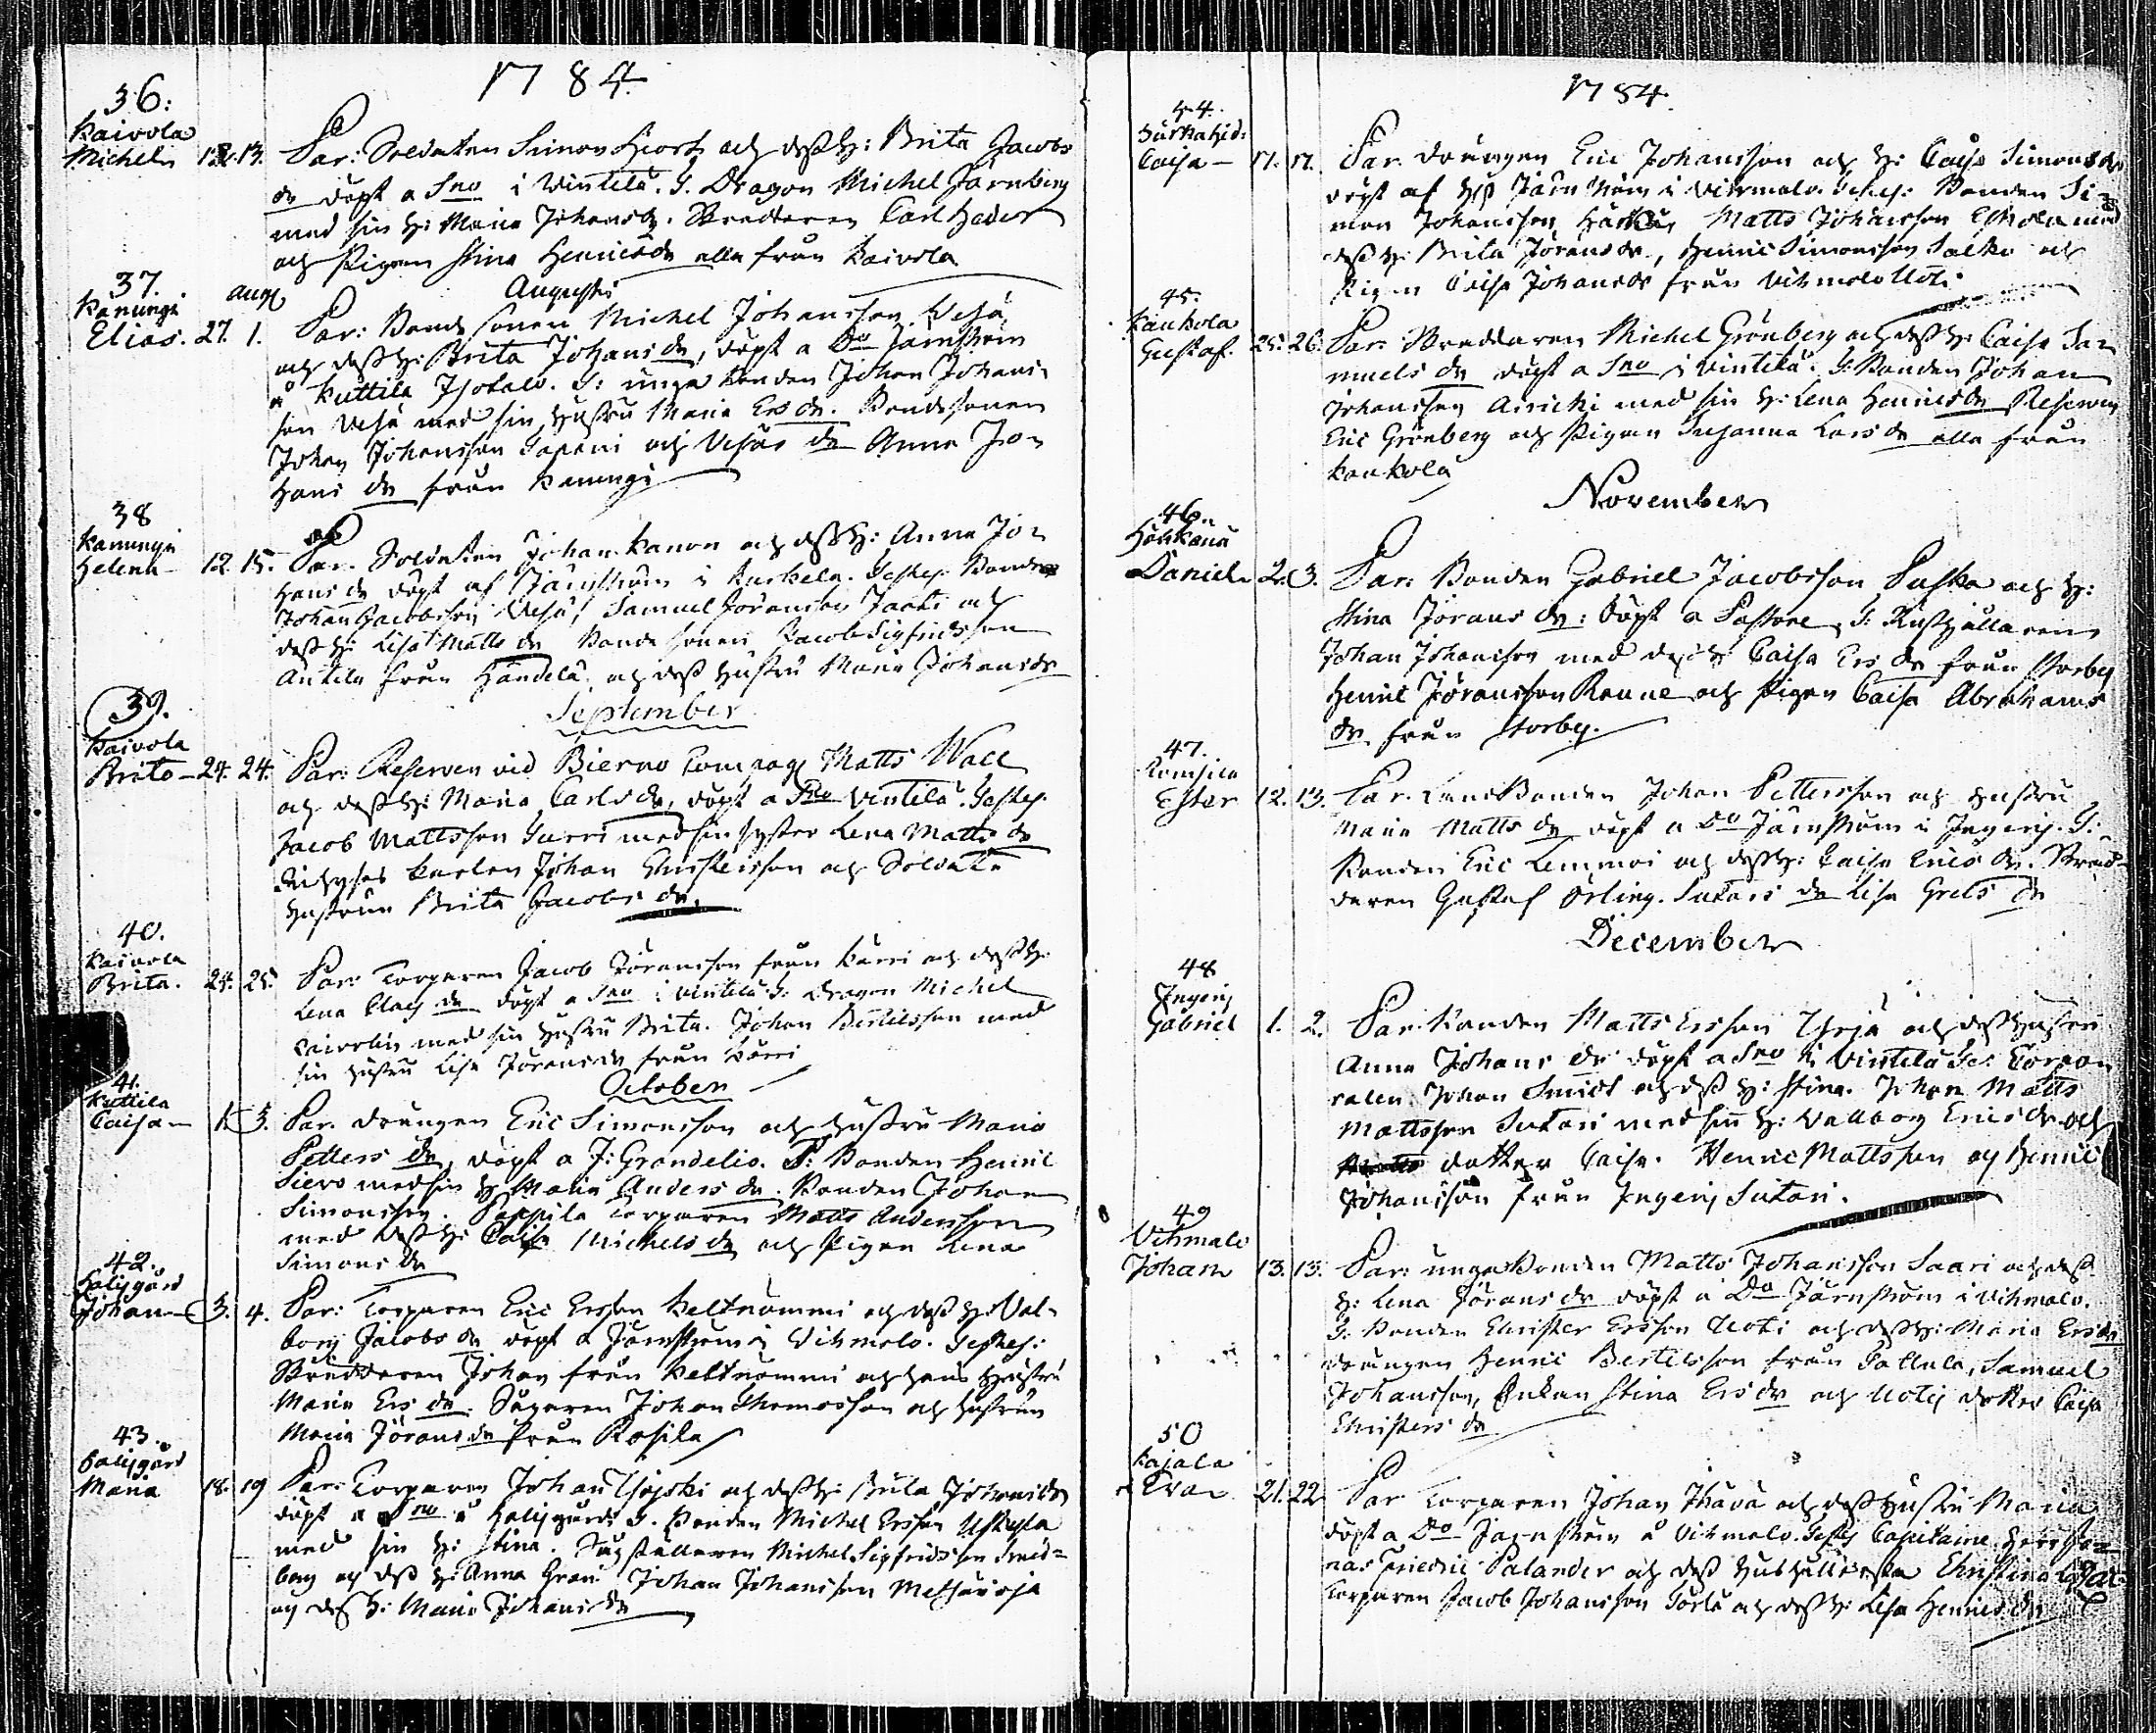 1784.
36:
Kaivola
Michel 12. 13. Par: Soldaten Simon Hiort och dess H: Brita Jacobs
dr döpt a Sno i Vintelä. T. Dragon Michel Järnberg
med sin H: Maria Johansdr. Skräddaren Carl Heder
och Pigan Stina Henricsdr alla från Kaivola
37.
Kanungi Aug Augusti
Elias. 27. 1. Par: Bonde sonen Michel Johansson Vesä
och dess H: Brita Johans dr, döpt a Do Järnström
å Kuttila Isotalo. T: unga Bonden Johan Johans
son Vesä med sin hustru Maria Ers dr. Bondesonen
Johan Johansson Papani och Vesäs dr Anna Jo=
hans dr från Kanungi
38
Kanungi
Helena 12. 15. Par. Soldaten Johan Kanon och dess H: Anna Jo=
hans dr döpt af Järnström i Karkela. Testes Bonden
Johan Jacobsson Vesä, Samuel Jöransson Jaati och
dess H: Lisa Matts dr Bonde sonen Jacob Sigfridsson
Antila från Händelä och dess hustru Maria Johansdr
September
39.
Kaivola
Brita 24. 24. Par: Reserven vid Bierno Compag Matts Wall
och dess H: Maria Carls dr, döpt a Sno Vintelä. Testes.
Jacob Mattsson Yurri med sin syster Lena Matts dr
karlen Johan Christersson och Soldate
hustrun Brita Jacobs dr.
40.
Kaivola
Brita. 24. 25. Par: Torparen Jacob Jöransson från Kärri och dess H:
Lena Claes dr döpt a Sno i Vintelä. T: Dragon Michel
Kaivolin med sin hustru Brita. Johan Bertilsson med
sin hustru Lisa Jöransdr från Kärri
October
41.
Kuttila
Caisa 1. 3. Par. Drängen Eric Simonsson och hustru Maria
Petters dr, döpt a J: Grandelio. T: Bonden Henric
Sievo med sin H: Maria Anders dr. Bonden Johan
Simonsson. Seppilä Torparen Matts Andersson
med dess H: Caisa Michels dr och Pigan Lena
Simons dr
42.
Halisgård
Johan 3. 4. Par: Torparen Eric Ersson Keltnummi och dess H: Val=
borg Jacobs dr döpt a Järnström i Vihmalo. Testes:
Skräddaren Johan från Keltnummi och hans hustru
Maria Ers dr. Sågaren Johan Thomasson och hustrun
Maria Jörans dr från Kosila
43.
Halisgård
Maria 18. 19 Par: Torparen Johan och dess H: Beata Johansdr
döpt a Sno å Halisgård. T. Bonden Michel Ersson Uskela
med sin H: Stina. Michel Sigfridsson Smed=
berg och dess H: Anna Gran. Johan Johansson Metsänoja
och dess H: Maria Johansdr
1784.
44.
Särkahid:
Caisa 17. 17. Par. Drängen Eric Johansson och H: Caisa Simonsdr
döpt af Hr Järnström i Vihmalo. Testes: Bonden Si=
mon Johansson Härkä, Matts Johansson Eskola med
dess H: Brita Jöransdr, Henric Simonsson Salko och
Pigan Caisa Johansdr från Vihmalo Uoti
45.
Kaukola
Gustaf. 25. 26. Par: Skräddaren Michel Grönberg och dess H: Caisa Sa=
muels dr döpt a Sno i Vintelä. T: Bonden Johan
Johansson Airicki med sin H: Lena Henricsdr Reserven
Eric Grönberg och Pigan Susanna Lars dr alla från
Kaukola
November
46.
Höskänä
Daniel 2. 3. Par: Bonden Gabriel Jacobsson Paska och H:
Stina Jörans dr: döpt a Pastore, T: Rusthållaren
Johan Johansson med dess H: Caisa Ers dr från Storby
Henric Jöransson Raune och Pigan Caisa Abrahams
dr från Storby.
47.
Romsila
Ester 12. 13. Par. Lane Bonden Johan Pettersson och hustru
Maria Matts dr döpt a Do Järnström i Ingeris. T:
Bonden Eric Lemmoi och dess H: Caisa Erics dr. Skräd=
daren Gustaf Örling. Sutars dr Lisa Grels dr
December
48
Ingeris
Gabriel 1. 2. Par. Bonden Matts Ersson Yrjä och dess hustru
Anna Johans dr döpt a Sno i Vintelä Tes: Corpo=
ralen Johan Smidt och dess H: Stina. Johan Matts
Mattsson Sutari med sin H: Vallborg Ericsdr och
dotter Caisa. Henric Mattsson och Henric
Johansson från Ingeris Sutari.
49
Vihmalo
Johan 13. 13. Par: unga Bonden Matts Johansson Saari och dess
H: Lena Jörans dr döpt a Do Järnström i Vihmalo.
T: Bonden Christer Ersson Uoti och dess H: Maria Ersdr
Drängen Henric Bertilsson från Pattula, Samuel
Johansson, Enkan Stina Ers dr och Uotis dotter Caisa
Christers dr
50
Kajala
Eva 21. 22 Par Torparen Johan Thava och dess hustru Maria
döpt a Do Järnström å Vihmalo. Testes Capitaine Herr Jo=
nas Friedric Palander och dess Hushållerska Christina
Torparen Jacob Johansson Torla och dess H: Lisa Henricsdr